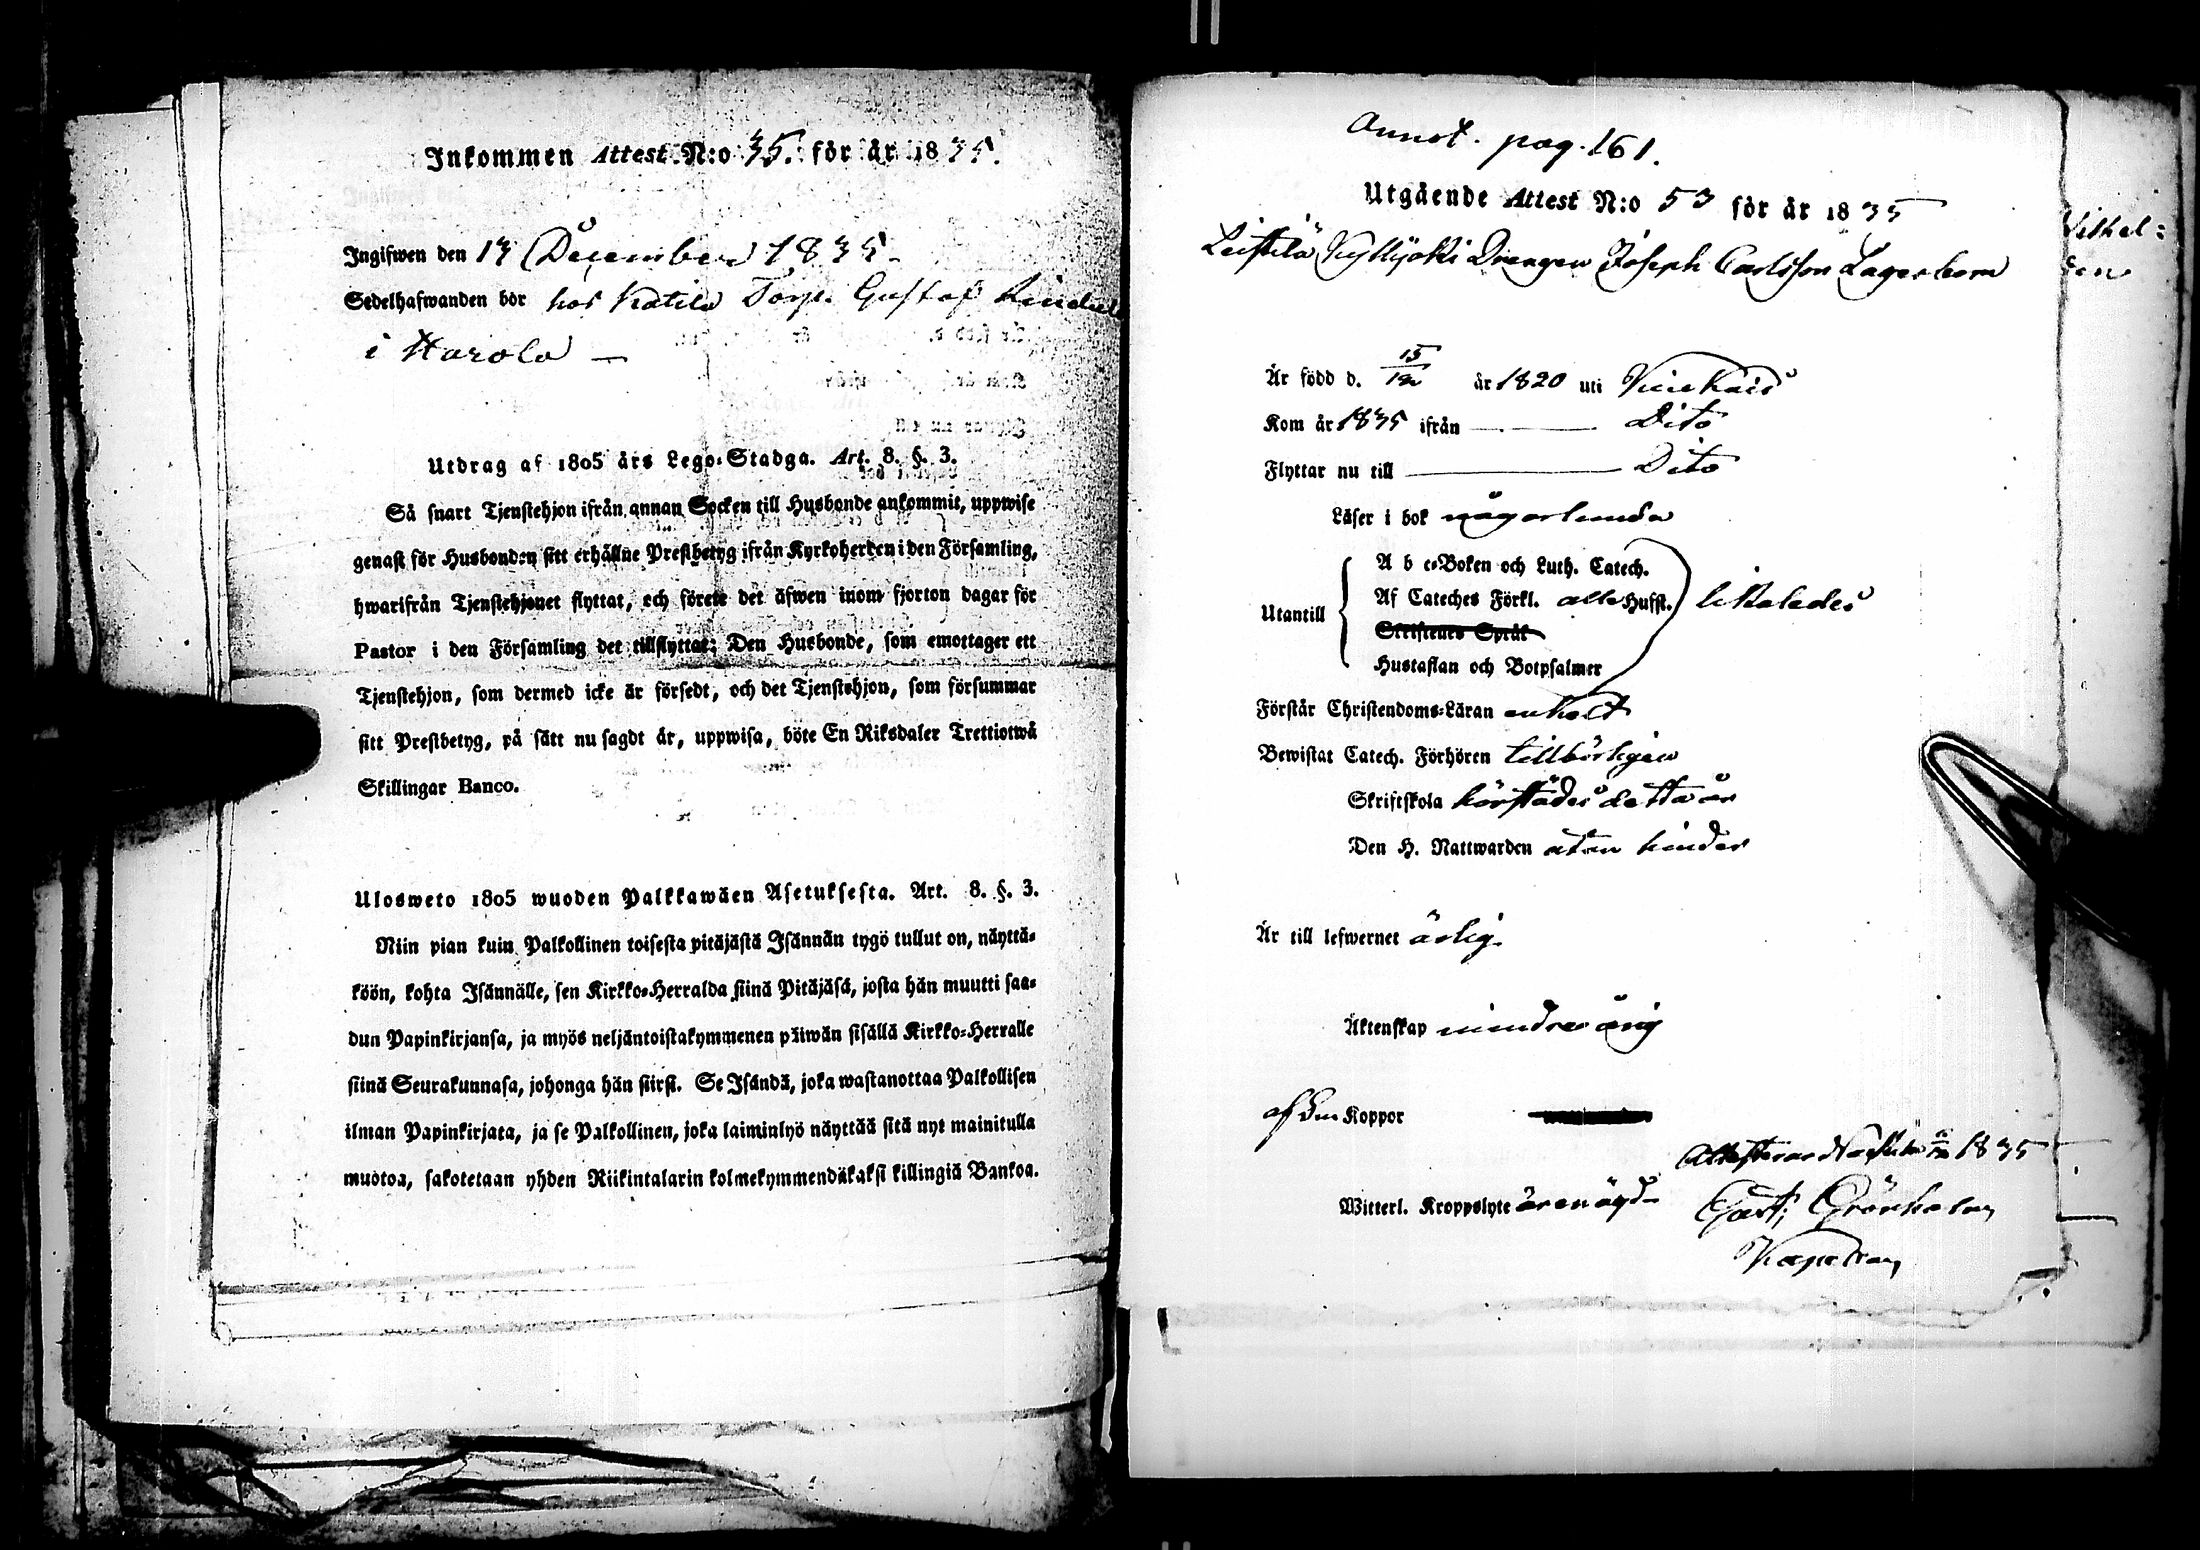 Inkommen Attest N:o 35. för år 1835.
Ingifwen den 17 December 1835
Sedelhafwanden bör hos Katila Torp. Gustaf
i Harola
Utdrag af 1805 års Lego-Stadga. Art. 8. §. 3.
Så snart Tjenstehjon ifrån annan Socken till Husbonde ankommit, uppwise
genast för Husbonden sitt erhållne Prestbetyg ifrån Kyrkoherden i den Församling,
hwarifrån Tjenstehjonet flyttat, och förete det äfwen inom fjorton dagar för
Pastor i den Församling det tillflyttat; Den Husbonde, som emottager ett
Tjenstehjon, som dermed icke är försedt, och det Tjenstehjon, som försummar
sitt Prestbetyg, på sätt nu sagdt är, uppwisa, böte En Riksdaler Trettiotwå
Skillingar Banco.
Ulosweto 1805 wuoden Palkkawäen Asetuksesta. Art. 8. §. 3.
Niin pian kuin Palkollinen toisesta pitäjästä Isännän tygö tullut on, näyttä-
köön, kohta Isännälle, sen Kirkko-Herralda siinä Pitäjäsä, josta hän muutti saa-
dun Papinkirjansa, ja myös neljäntoistakymmenen päiwän sisällä Kirkko-Herralle
siinä Seurakunnasa, johonga hän siirsi. Se Isändä, joka wastanottaa Palkollisen
ilman Papinkirjata, ja se Palkollinen, joka laiminlyö näyttää sitä nyt mainitulla
muotoa, sakotetaan yhden Riikintalarin kolmekymmendäkaksi killingiä Bankoa.
Annot. pag. 161.
Utgående Attest N:o 53 för år 1835
Leistilä Kyllijoki Drengen Joseph Carlsson Lagerbom
Är född d. 15/12 år 1820 uti
Kom år 1835 ifrån Dito
Flyttar nu till Dito
Läser i bok någorlunda
A b c-Boken och Luth. Catech.
Af Cateches Förkl. alla Hufst. likaledes
Utantill
Skriftenes Språk
Hustaflan och Botpsalmer
Förstår Christendoms-Läran enkelt
Bewistat Catech. Förhören tillbörligen
Skriftskola härstädes detta år
Den H. Nattwarden utan hinder
Är till lefwernet ärlig.
Äktenskap minderårig
Koppor
Attesterar Nackila 1835
Witterl. Kroppslyte
Gust. Grönholm
Kapellan